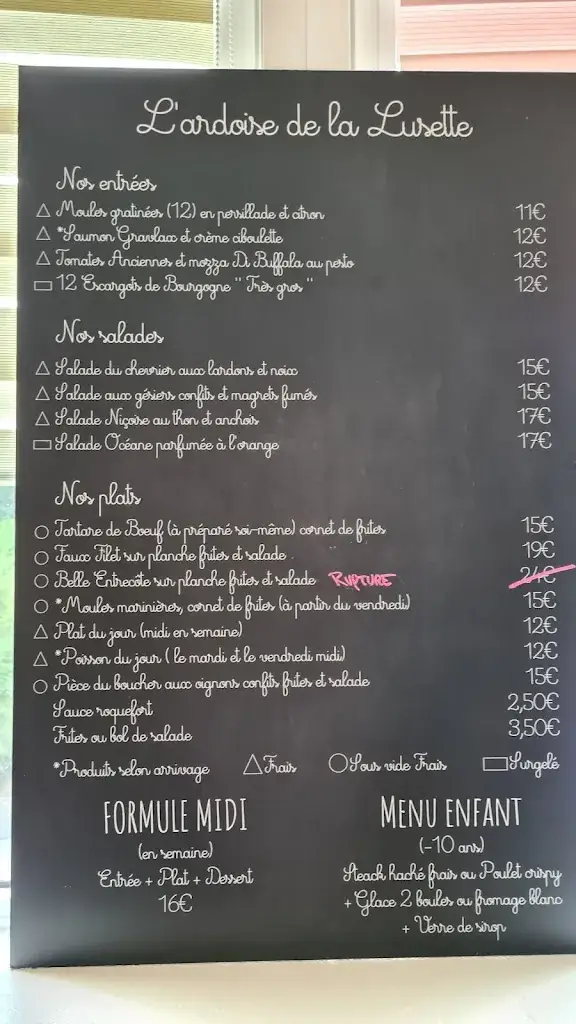 L'ardoise de la Lusette
Nos entrées
△ Moules gratinées (12) en persillade et citron 11€
△ *Saumon Gravlax et crème ciboulette 12€
△ Tomates Anciennes et mozza Di Buffala au pesto 12€
▭ 12 Escargots de Bourgogne " Très gros " 12€
Nos salades
△ Salade du chevrier aux lardons et noix 15€
△ Salade aux gésiers confits et magrets fumés 15€
△ Salade Niçoise au thon et anchois 17€
▭ Salade Océane parfumée à l'orange 17€
Nos plats
○ Tartare de Boeuf (à préparé soi-même) cornet de frites 15€
○ Faux Filet sur planche frites et salade . 19€
○ Belle Entrecôte sur planche frites et salade RUPTURE 24€
○ *Moules marinières, cornet de frites (à partir du vendredi) 15€
△ Plat du jour (midi en semaine) 12€
△ *Poisson du jour ( le mardi et le vendredi midi) 12€
○ Pièce du boucher aux oignons confits frites et salade 15€
Sauce roquefort 2,50€
Frites ou bol de salade 3,50€
*Produits selon arrivage △ Frais ○ Sous vide Frais ▭ Surgelé
FORMULE MIDI
(en semaine)
Entrée + Plat + Dessert
16€
MENU ENFANT
(-10 ans)
Steack haché frais ou Poulet crispy
+ Glace 2 boules ou fromage blanc
+ Verre de sirop